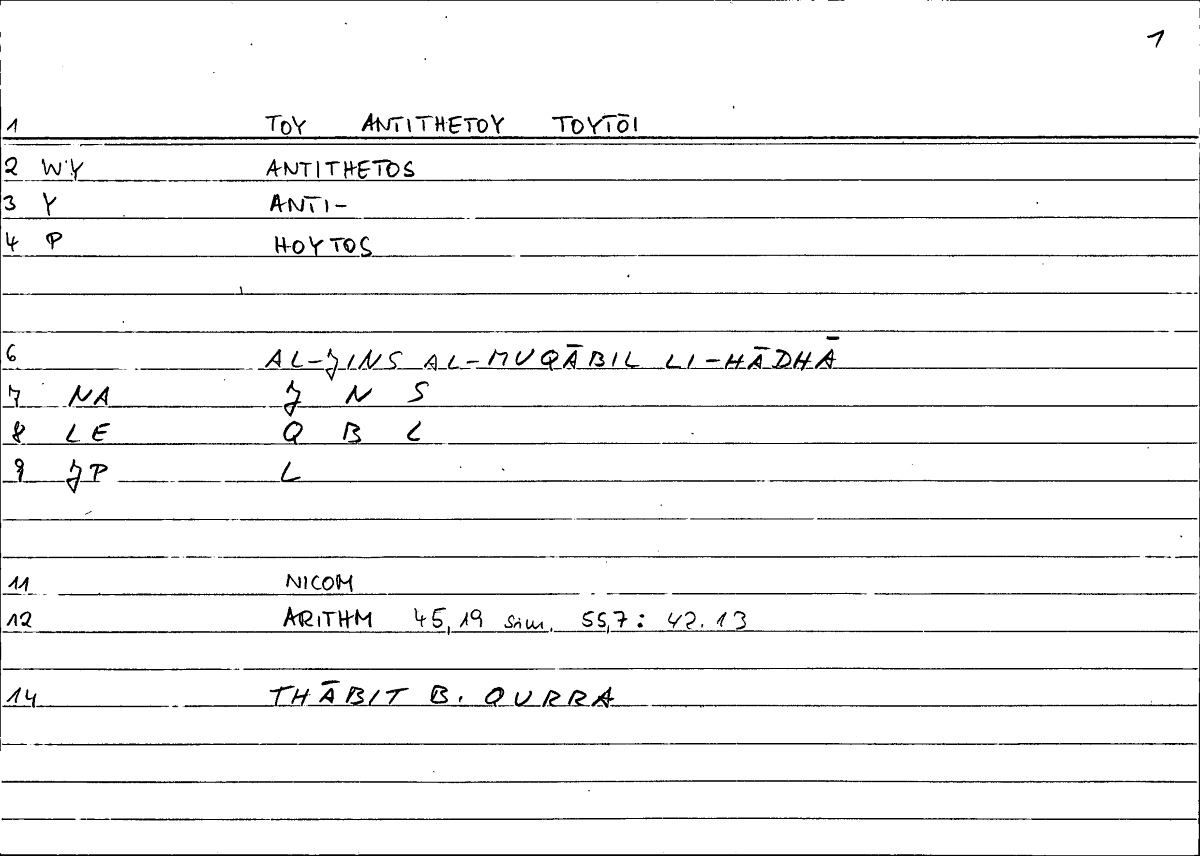 1
1 TOY ANTITHETOY TOYTŌI
2 WY ANTITHETOS
3 Y ANTI-
4 P HOYTOS
6 AL-JINS AL-MUQĀBIL LI-HĀDHĀ
7 NA J N S
8 LE Q B L
9 JP L
11 NICOM
12 ARITHM 45,19 sim. 55,7: 42.13
14 THĀBIT B. QURRA